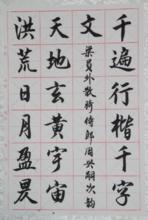 千遍行楷千字
文 梁員外散騎侍郎周興嗣次韵
天地玄黃宇宙
洪荒日月盈昃